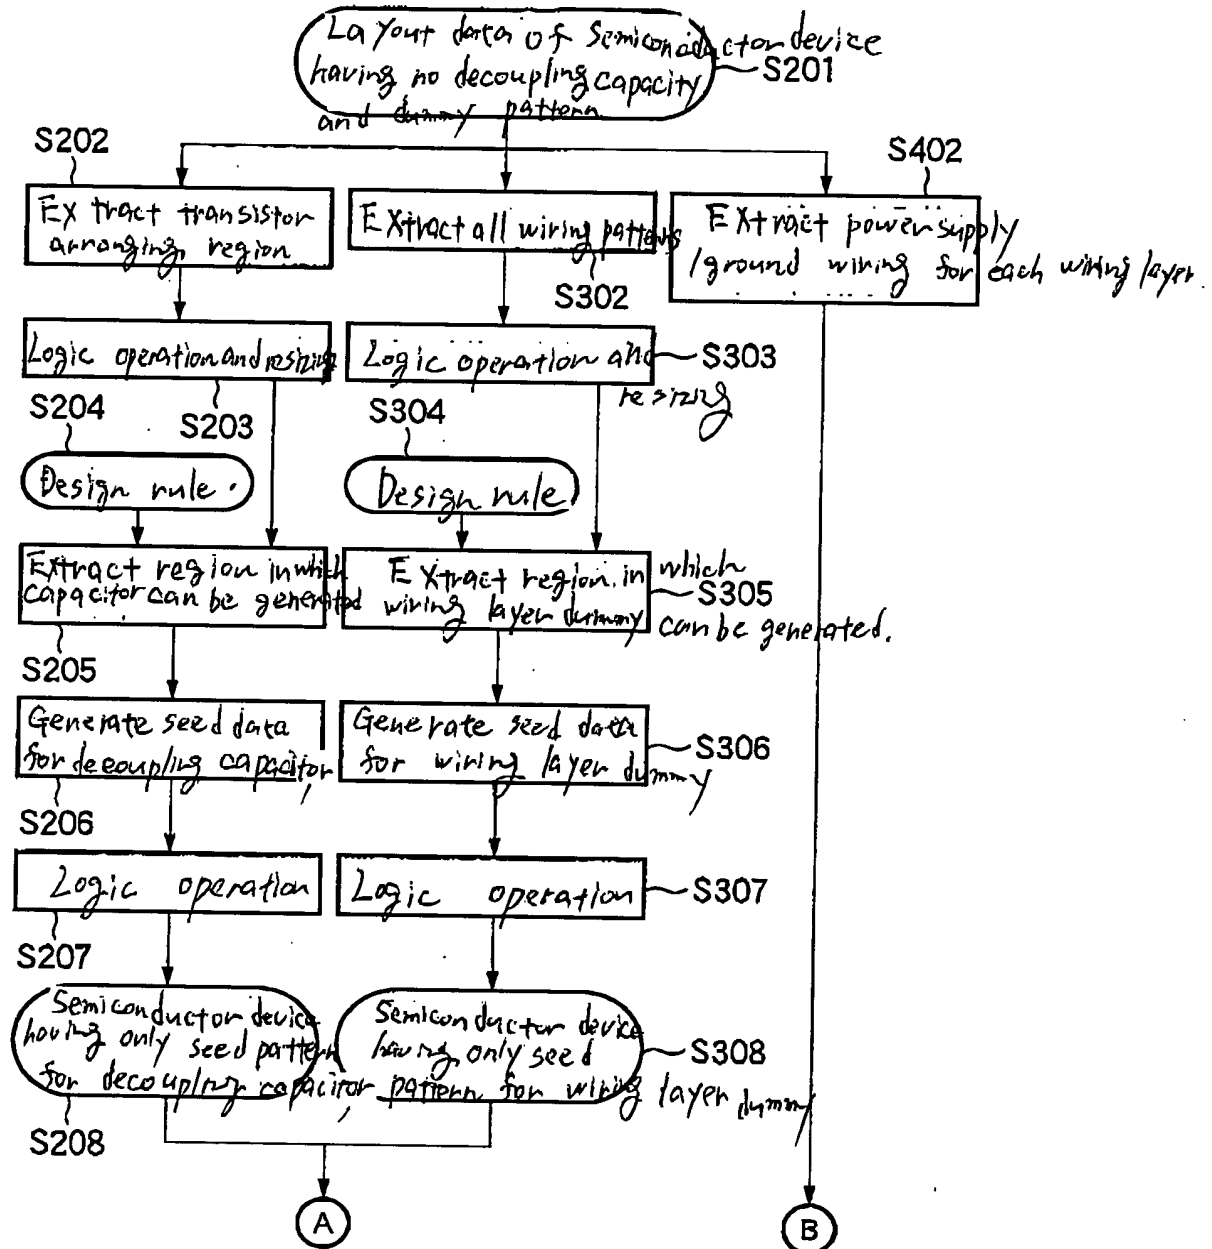 Layout data of Semiconductor device
having no decoupling capacity
and dummy pattern
S201
S202
S402
Extract transistor
arranging region
Extract all wiring patterns
S302
Extract power supply
/ground wiring for each wiring layer.
Logic operation and resizing
S203
Logic operation and
resizing
S303
S204
Design rule.
S304
Design rule
Extract region in which
capacitor can be generated
S205
Extract region in which
wiring layer dummy can be generated.
S305
Generate seed data
for decoupling capacitor,
S206
Generate seed data
for wiring layer dummy
S306
Logic operation
S207
Logic operation
S307
Semiconductor device
having only seed pattern
for decoupling capacitor,
S208
Semiconductor device
having only seed
pattern for wiring layer dummy
S308
A
B